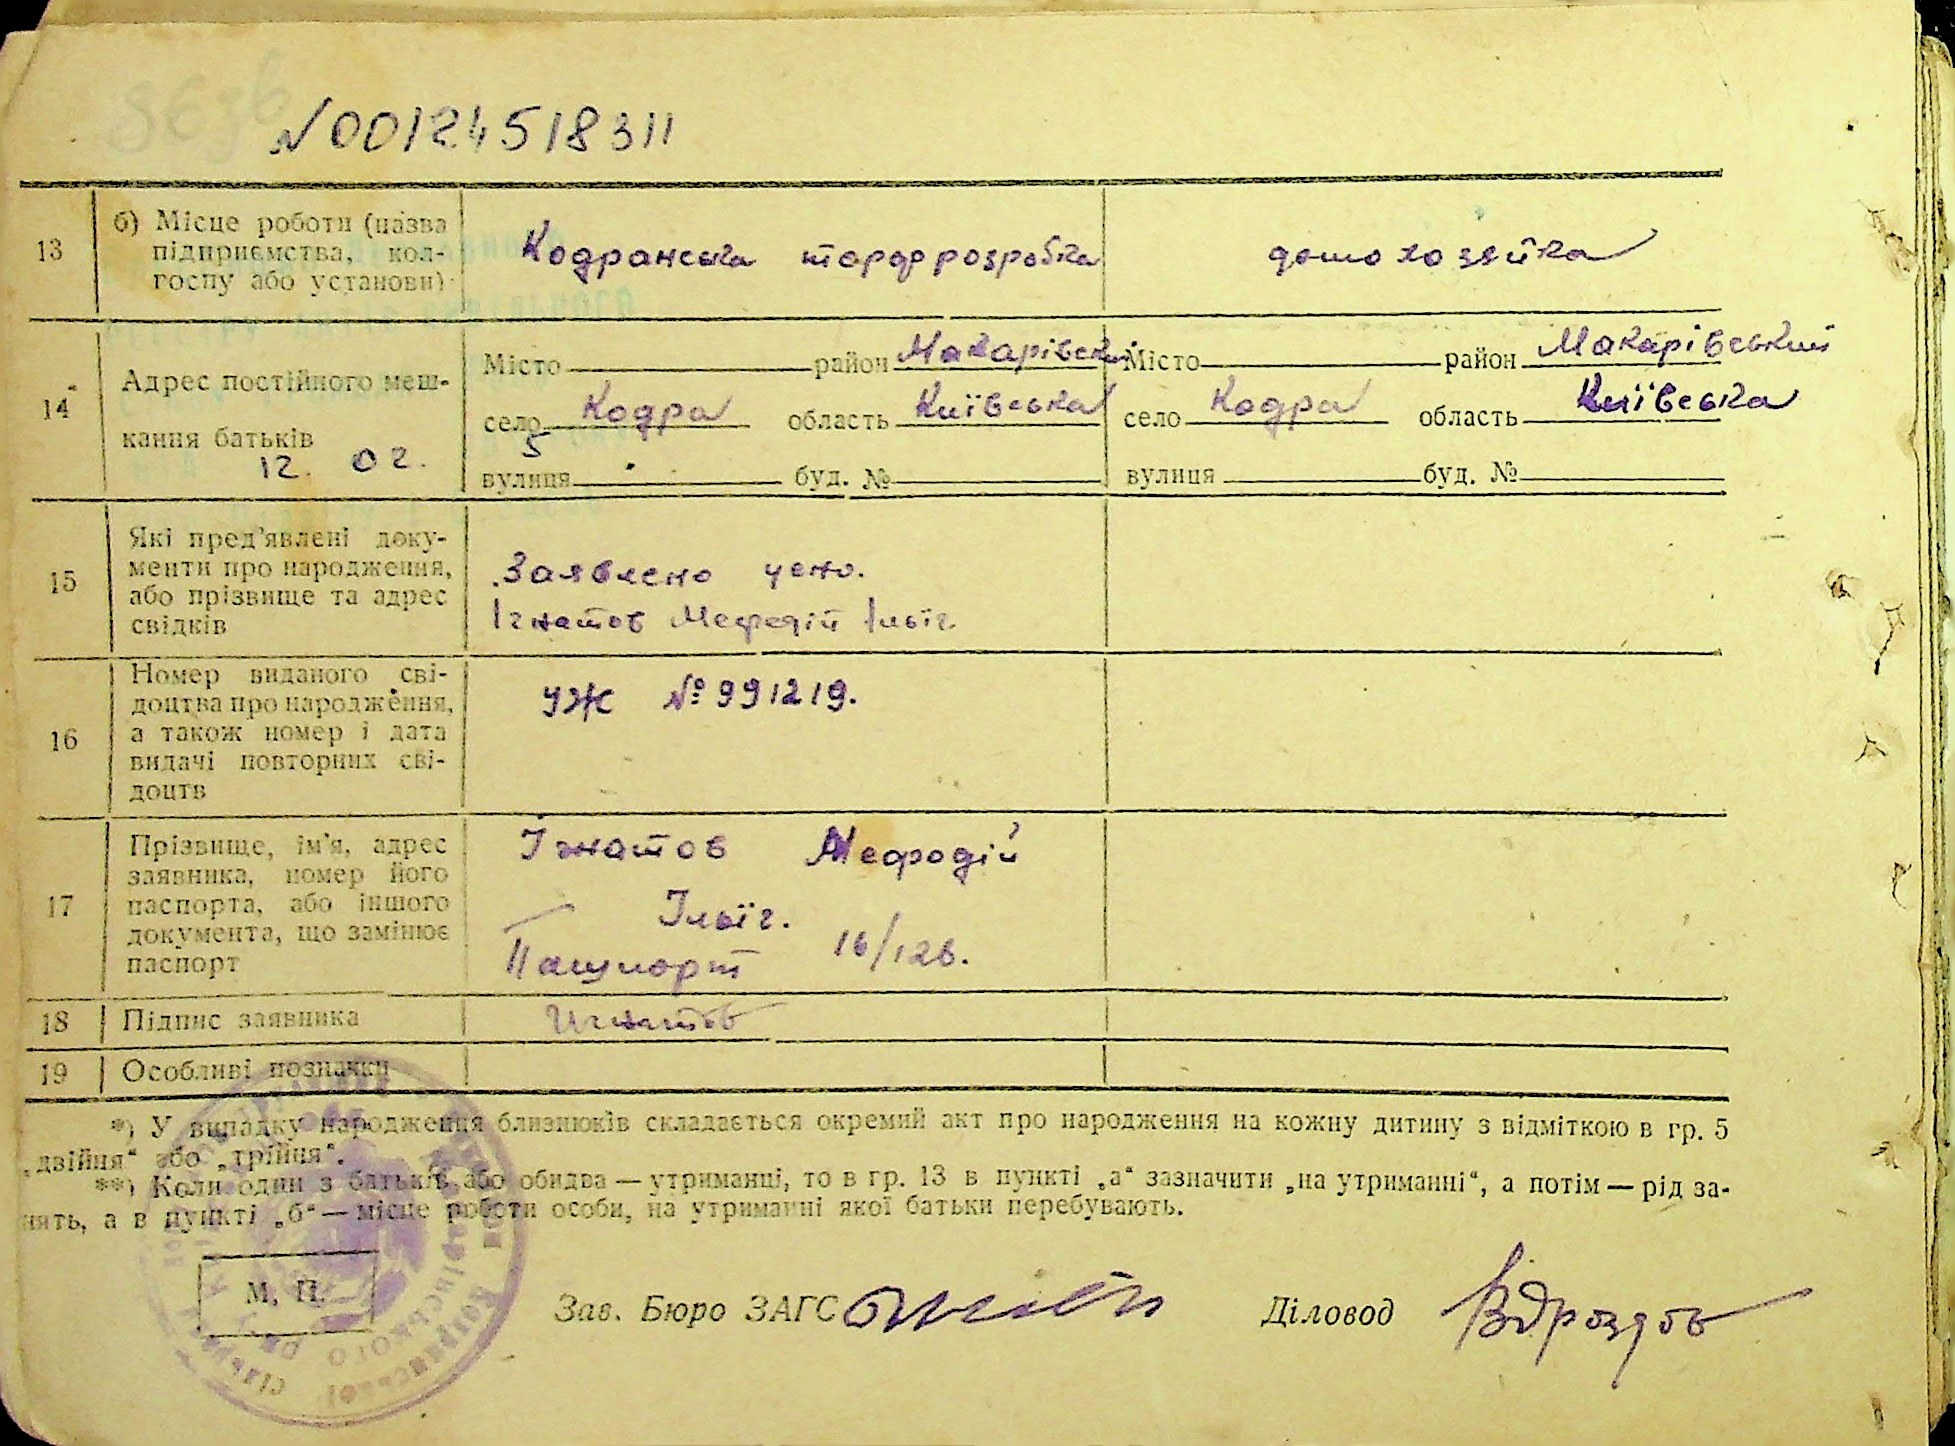 N00124518311
13
б) Місце роботи (назва
підприємства, кол-
госпу або установи)
Кодранська торфорозробка
домохозяйка
14
Адрес постійного меш-
кання батьків
12. 02.
Місто район Макарівськ
село Кодра область Київська
5
вулиця буд. №
Місто район Макарівський
село Кодра область Київська
вулиця буд. №
15
Які пред'явлені доку-
менти про народження,
або прізвище та адрес
свідків
Заявлено усно.
Ігнатов Мефодій Ільїч
16
Номер виданого сві-
доцтва про народження,
а також номер і дата
видачі повторних сві-
доцтв
УЖ № 991219.
17
Прізвище, ім'я, адрес
заявника, номер його
паспорта, або іншого
документа, що замінює
паспорт
Ігнатов Мефодій
Ільїч.
Пашпорт 16/126.
18
Підпис заявника
Игнатов
19
Особливі позначки
*) У випадку народження близнюків складається окремий акт про народження на кожну дитину з відміткою в гр. 5
„двійня“ або „трійня“.
**) Коли один з батьків або обидва — утриманці, то в гр. 13 в пункті „а“ зазначити „на утриманні“, а потім — рід за-
нять, а в пункті „б“ — місце роботи особи, на утриманні якої батьки перебувають.
М. П.
Зав. Бюро ЗАГС
Діловод ВДроздов